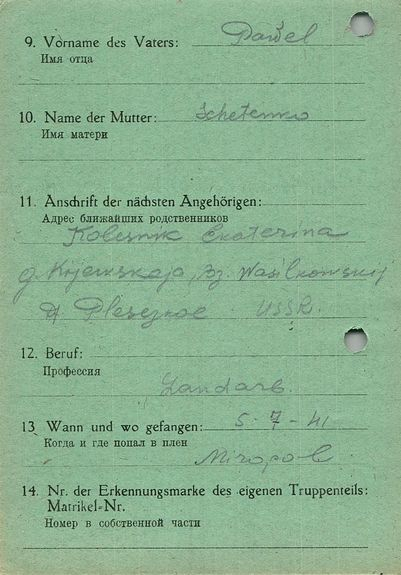 9. Vorname des Vaters: Pawel
Имя отца
10. Name der Mutter: Schetenko
Имя матери
11. Anschrift der nächsten Angehörigen:
Адрес ближайших родственников
Kolesnik Ekaterina
g. Kijewskaja, Bz. Wasilkowskij
D. Plesezkoe USSR.
12. Beruf:
Профессия
Landarb.
13. Wann und wo gefangen: 5-7-41
Когда и где попал в плен
Miropol
14. Nr. der Erkennungsmarke des eigenen Truppenteils:
Matrikel-Nr.
Номер в собственной части